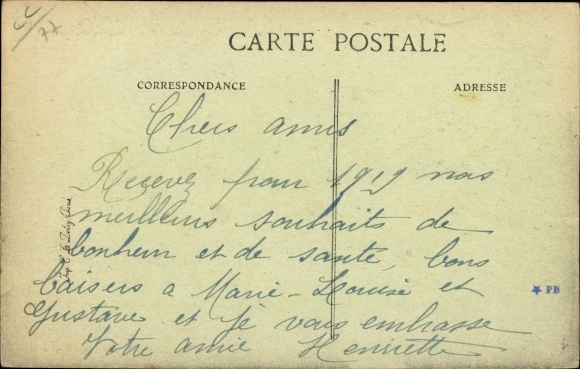 77
CARTE POSTALE
CORRESPONDANCE
ADRESSE
Chers amis
Recevez pour 1919 nos
meilleurs souhaits de
bonheur et de santé, bons
baisers a Marie-Louise et
Gustave et je vous embrasse
Votre amie Henriette
PB